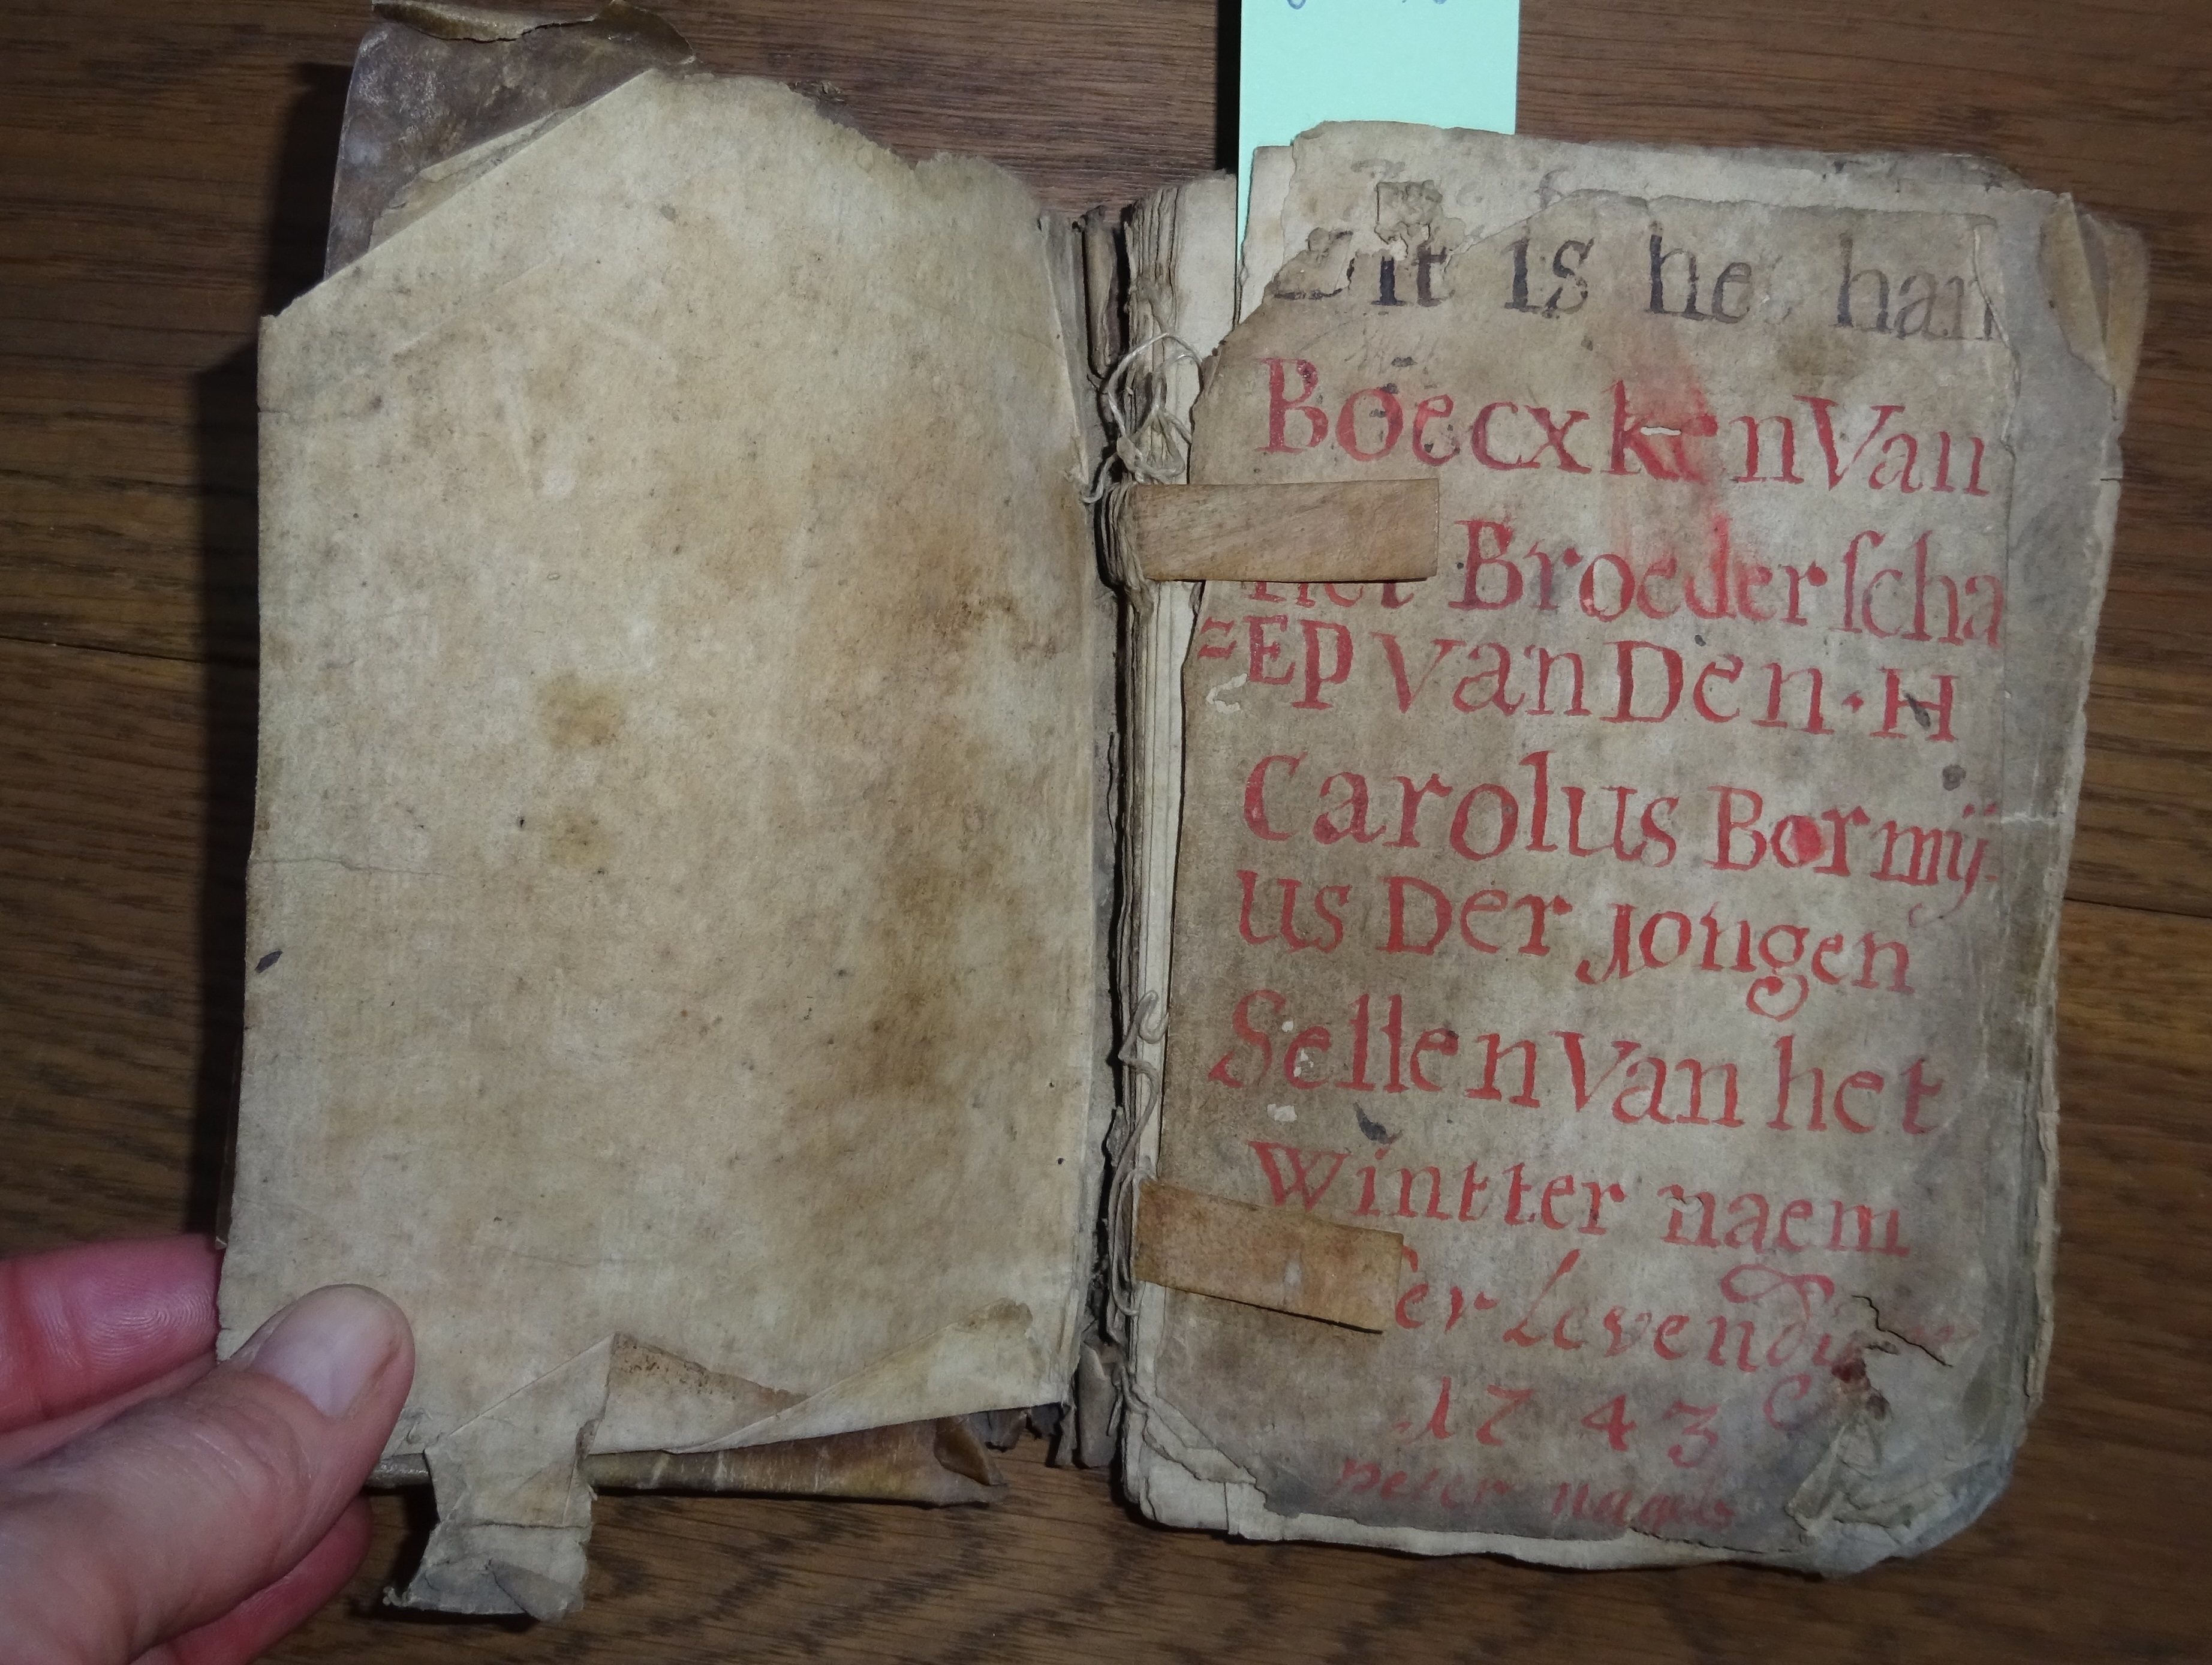 Dit is het han
Boecxken Van
het Broederscha
=EP Van Den · H
Carolus Bormij-
us Der jongen
Sellen Van het
Wintter naem
Der Levendige
1743
peter nagels